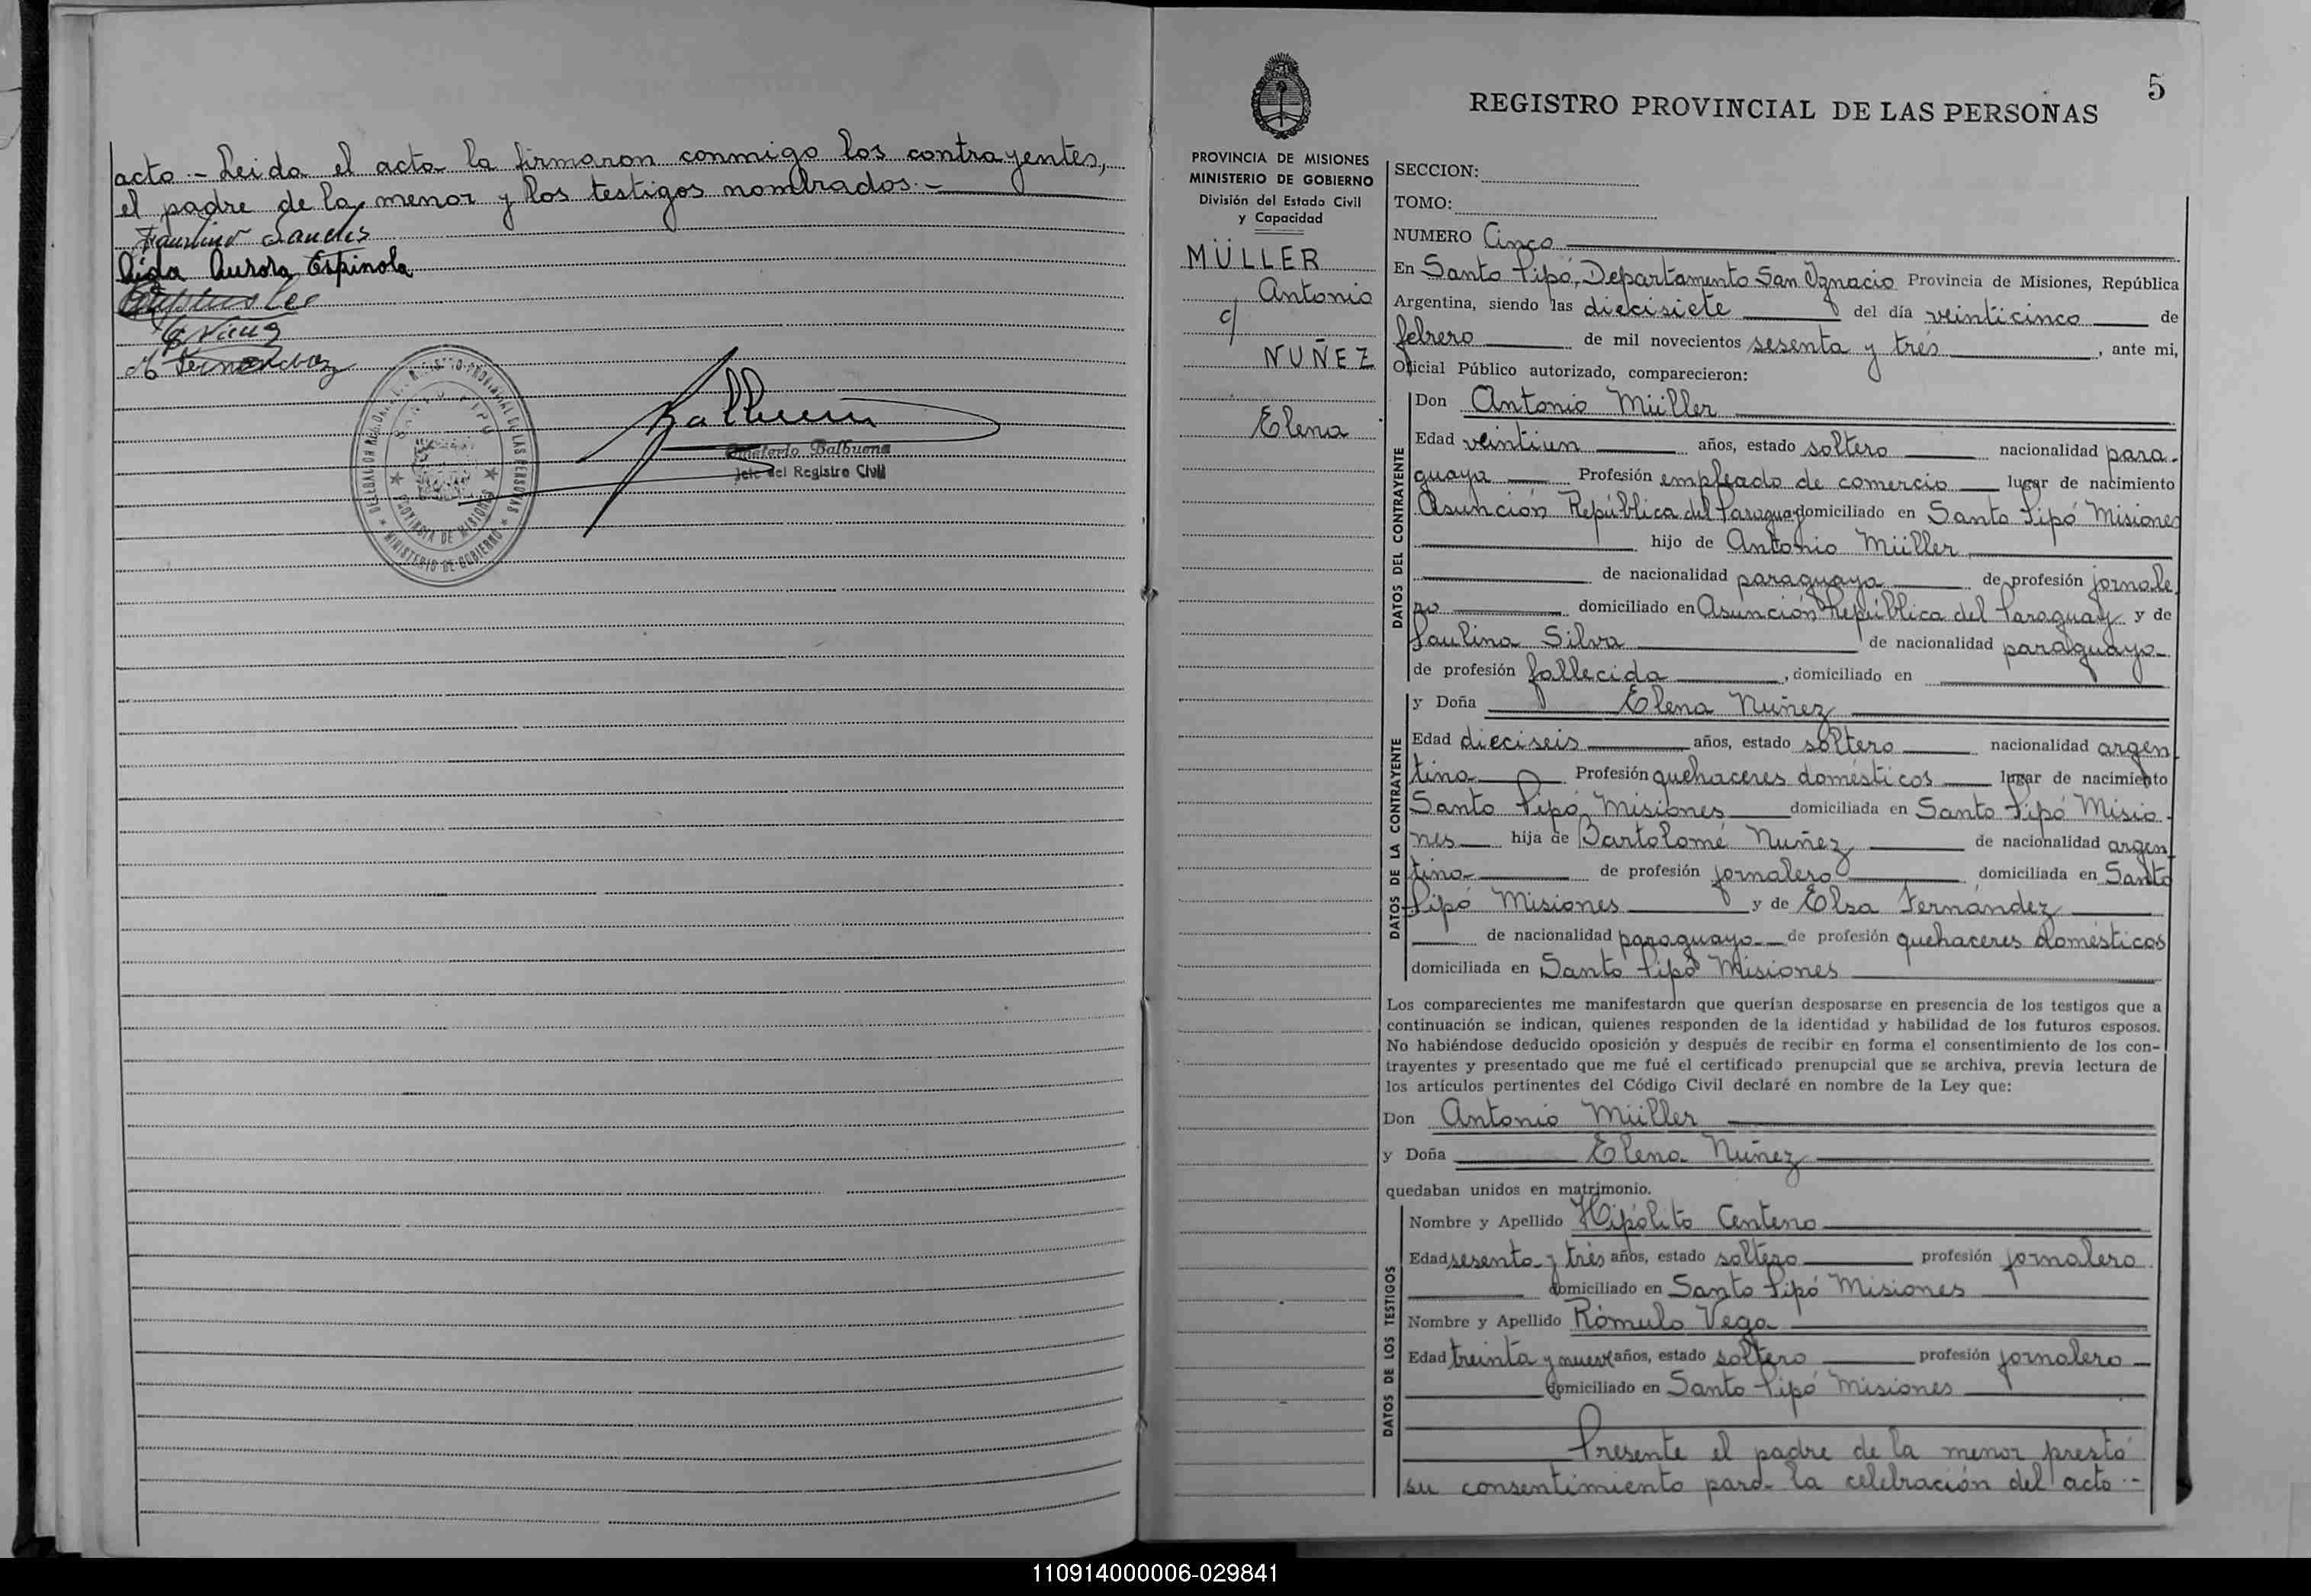 acto.- Leida el acta la firmaron conmigo los contrayentes,
el padre de la menor y los testigos nombrados.-
Faustino
Aida Aurora Espinola
Fernandez
Balbuena
Balbuena
Jefe del Registro Civil
REGISTRO PROVINCIAL DE LAS PERSONAS
PROVINCIA DE MISIONES
MINISTERIO DE GOBIERNO
5
REGISTRO PROVINCIAL DE LAS PERSONAS
PROVINCIA DE MISIONES
MINISTERIO DE GOBIERNO
División del Estado Civil
y Capacidad
MÜLLER
Antonio
c/
NUÑEZ
Elena
SECCION:
TOMO:
NUMERO Cinco
En Santo Pipó, Departamento San Ignacio Provincia de Misiones, República
Argentina, siendo las diecisiete del día veinticinco de
febrero de mil novecientos sesenta y tres, ante mi,
Oficial Público autorizado, comparecieron:
DATOS DEL CONTRAYENTE
Don Antonio Müller
Edad veintiun años, estado soltero nacionalidad para-
guaya Profesión empleado de comercio lugar de nacimiento
Asunción República del Paraguay domiciliado en Santo Pipó Misiones
hijo de Antonio Müller
de nacionalidad paraguaya de profesión jornale
ro domiciliado en Asunción República del Paraguay y de
Paulina Silva de nacionalidad paraguaya
de profesión fallecida, domiciliado en
DATOS DE LA CONTRAYENTE
y Doña Elena Nuñez
Edad dieciseis años, estado soltero nacionalidad argen
tina Profesión quehaceres domésticos lugar de nacimiento
Santo Pipó Misiones domiciliada en Santo Pipó Misio
nes hija de Bartolomé Nuñez de nacionalidad argen
tina de profesión jornalero domiciliada en Santo
Pipó Misiones y de Elsa Fernández
de nacionalidad paraguaya de profesión quehaceres domésticos
domiciliada en Santo Pipó Misiones
Los comparecientes me manifestaron que querían desposarse en presencia de los testigos que a
continuación se indican, quienes responden de la identidad y habilidad de los futuros esposos.
No habiéndose deducido oposición y después de recibir en forma el consentimiento de los con-
trayentes y presentado que me fué el certificado prenupcial que se archiva, previa lectura de
los artículos pertinentes del Código Civil declaré en nombre de la Ley que:
Don Antonio Müller
y Doña Elena Nuñez
quedaban unidos en matrimonio.
DATOS DE LOS TESTIGOS
Nombre y Apellido Hipólito Centeno
Edad sesenta y tres años, estado soltero profesión jornalero
domiciliado en Santo Pipó Misiones
Nombre y Apellido Rómulo Vega
Edad treinta y nueve años, estado soltero profesión jornalero
domiciliado en Santo Pipó Misiones
Presente el padre de la menor prestó
su consentimiento para la celebración del acto.-
110914000006-029841